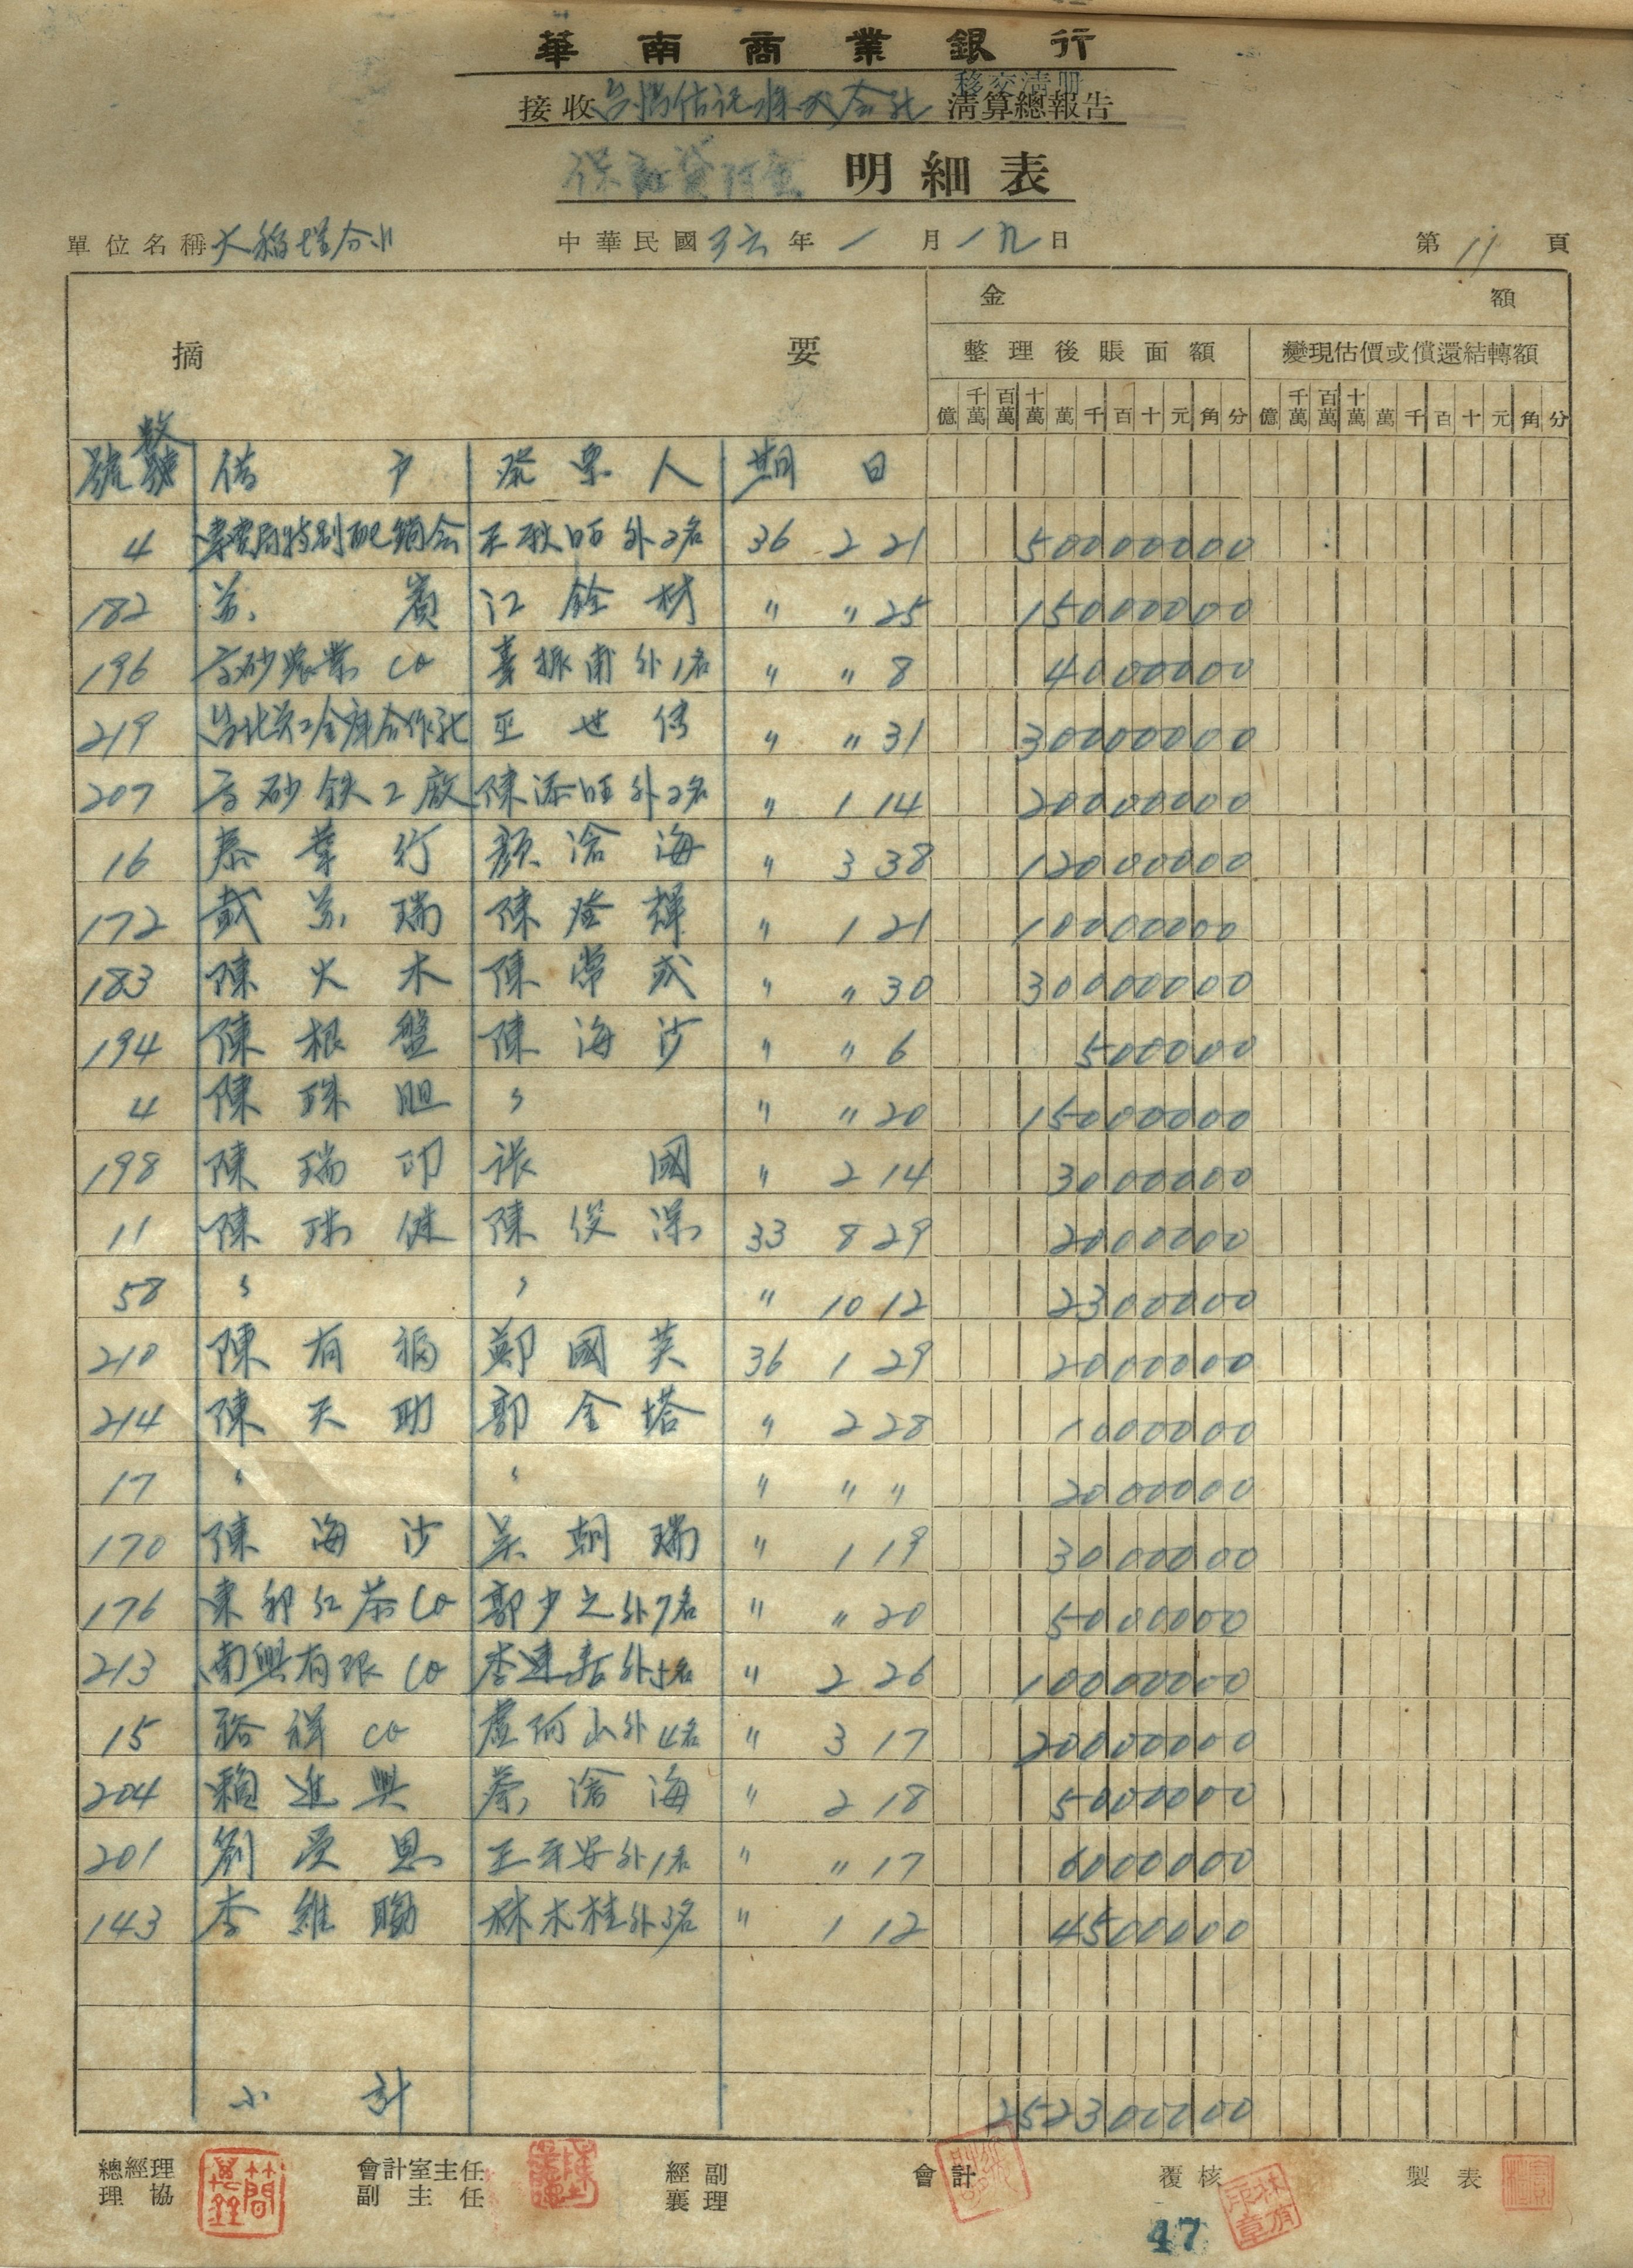 華南商業銀行
移交清冊
接收 清算總報告
保証貸付金 明細表
單位名稱 大稻埕分 中華民國 三六 年 一 月 一九 日 第 11 頁
摘 要 金 額
整理後賬面額 變現估價或償還結轉額
億 千萬 百萬 十萬 萬 千 百 十 元 角 分 億 千萬 百萬 十萬 萬 千 百 十 元 角 分
號數 借戶 發票人 期日
4 專賣局特別配銷会 王耿 外2名 36 2 21 50000000
182 賓 江銓材 〃 〃 25 15000000
196 高砂農業 Co 振甫外1名 〃 〃 8 4000000
219 合作社 巫世傳 〃 〃 31 30000000
207 高砂鉄工廠 陳添旺外2名 〃 1 14 20000000
16 泰業行 顏滄海 〃 3 38 12000000
172 戴 瑞 陳登輝 〃 1 21 10000000
183 陳火木 陳常 〃 〃 30 30000000
194 陳根盤 陳海沙 〃 〃 6 500000
4 陳珠胆 〃 〃 〃 20 15000000
198 陳瑞 張國 〃 2 14 3000000
11 陳 陳俊深 33 8 29 2000000
58 〃 〃 〃 10 12 2300000
210 陳有福 鄭國英 36 1 29 2000000
214 陳天助 郭金塔 〃 2 28 1000000
17 〃 〃 〃 〃 〃 2000000
170 陳海沙 吳朝瑞 〃 1 19 3000000
176 東邦紅茶Co 郭少之外7名 〃 〃 20 5000000
213 南興有限 Co 李連 外5名 〃 2 26 10000000
15 裕祥 Co 盧阿山外4名 〃 3 17 20000000
204 賴進興 蔡滄海 〃 2 18 5000000
201 劉受恩 王平安外1名 〃 〃 17 6000000
143 李維 林木桂外3名 〃 1 12 4500000
小計 252300000
總經理 會計室主任 經副 會計 覆核 製表
理協 副主任 襄理
47